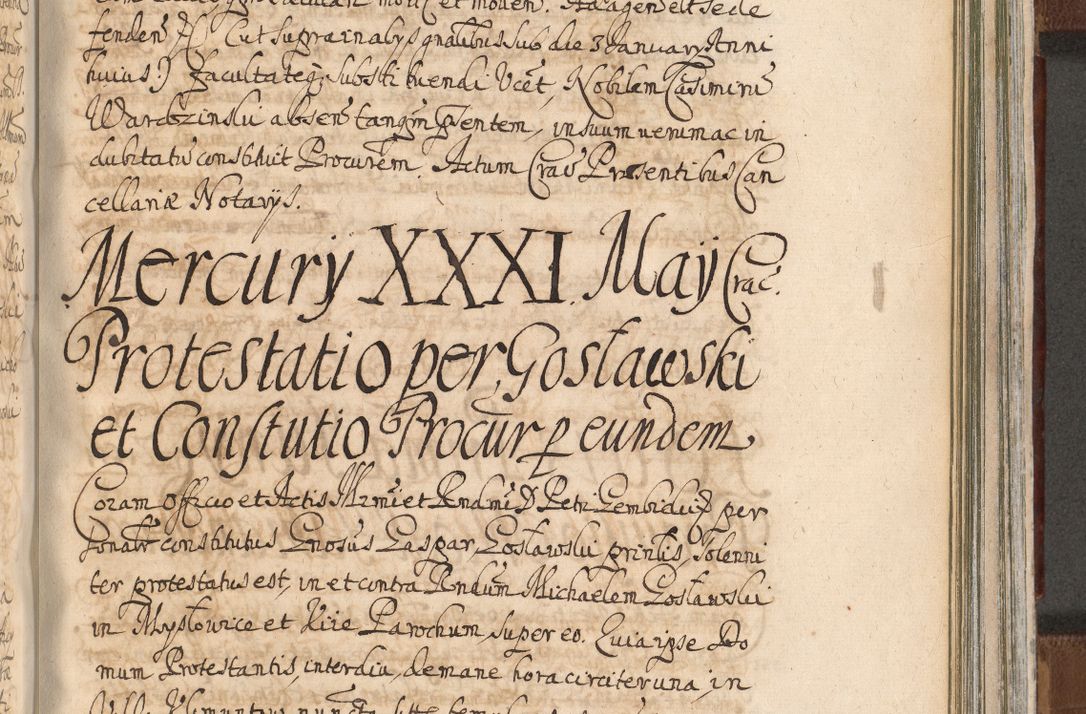 fenden ut supra in alys gnalibus sub die 3 January Anni
huius) facultateq; substituendi Ucet, Nobilem Casimirũ
Wardzinski absenˢ tangm̃ p̃sentem, in suum verum ac in
dubitatũ constituit Procurẽm. Actum Crac̃ Præsentibus Can
cellariæ Notarys.
Mercurÿ XXXI. Maÿ Crac̃.
Protestatio per Gosławski
et Constutio Procur̃ p eundem
Coram Officio et Actis Illmi et Rndmi D Petri Gembicki per
sonalr̃ constitutus Gnosus Gaspar Gosławski prin̄lis, Solenni
ter protestatus est, in et contra Rndum Michaelem Gosławski
in Mysłowice et Parochum, super eo. Quia ipse Do
mum Protestantis, interdiu, de mane hora circiter una, in